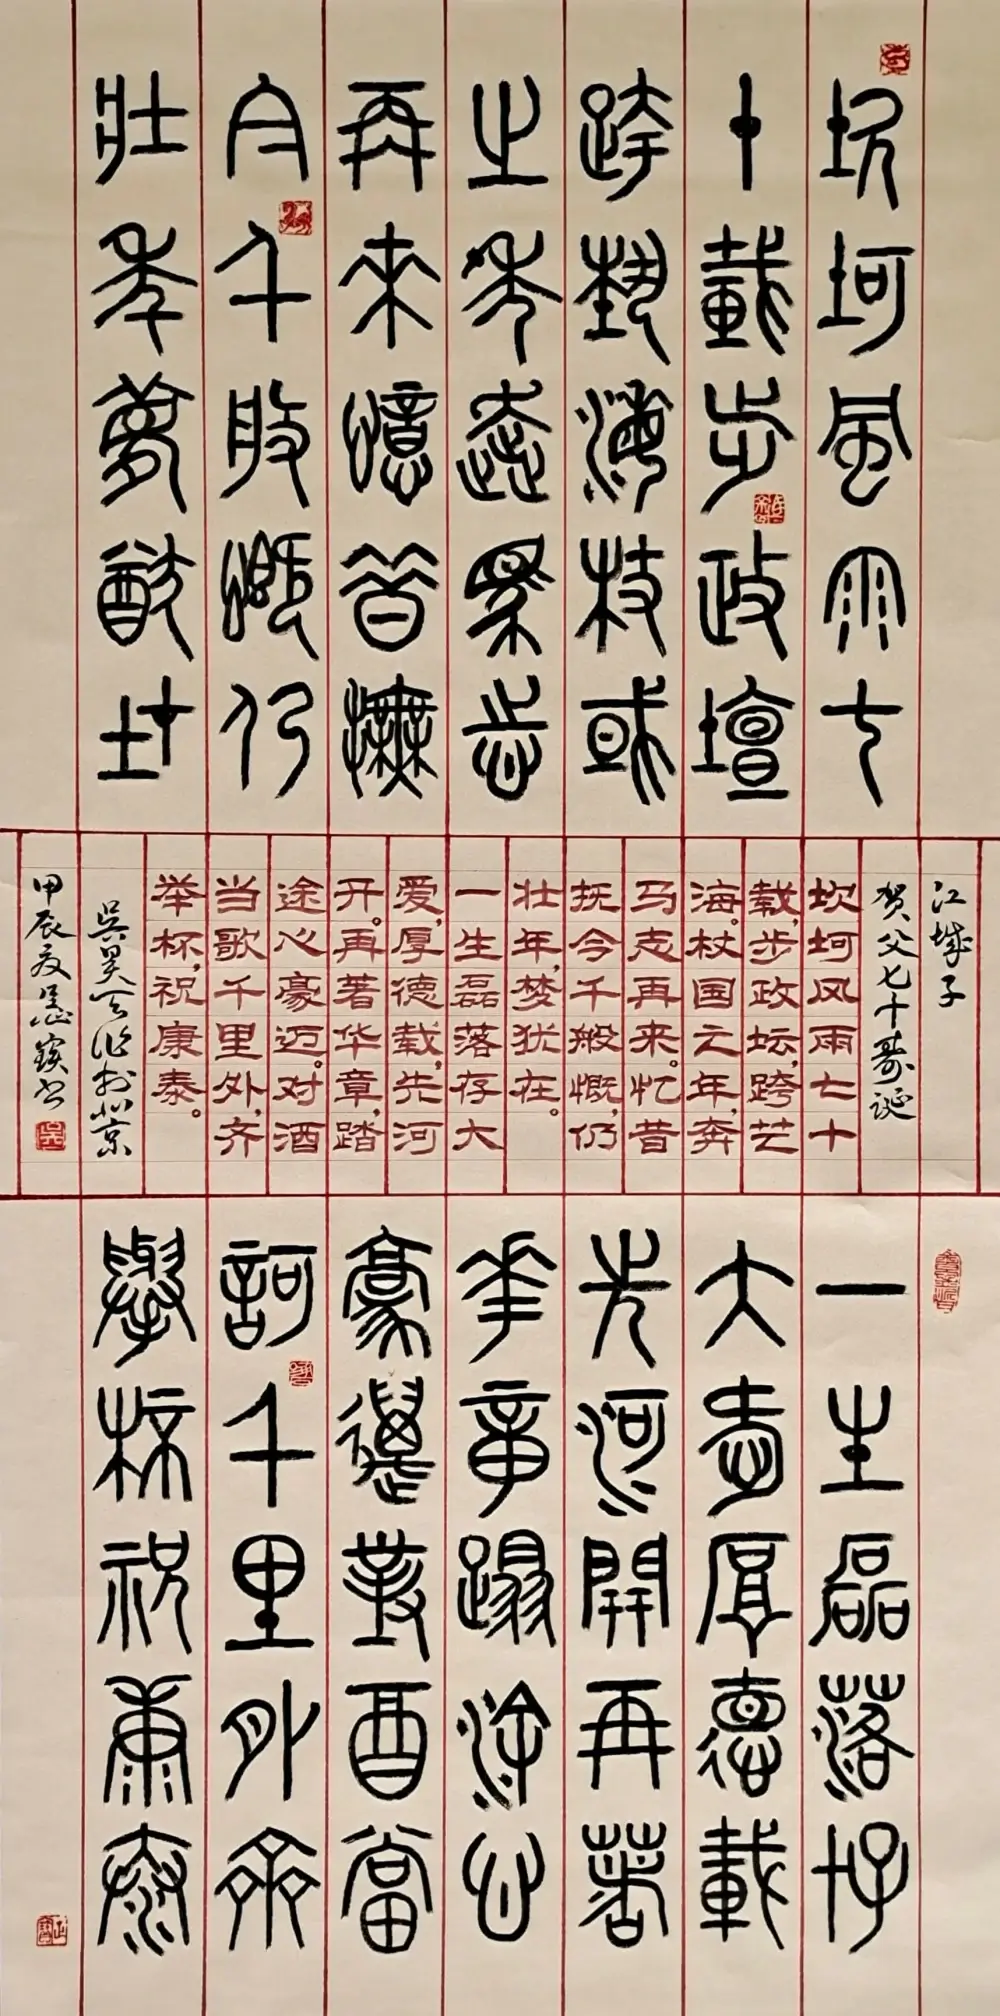 坎坷風雨七
十載步政壇
跨埶海杖或
之年奔馬志
再來憶昔撫
今千般慨仍
壯年夢猶在
江城子
贺父七十寿诞
坎坷风雨七十
载，步政坛，跨艺
海。杖国之年，奔
马志再来。忆昔
抚今千般慨，仍
壮年，梦犹在。
一生磊落存大
爱，厚德载，先河
开。再著华章，踏
途心豪迈。对酒
当歌千里外，齐
举杯，祝康泰。
吴昊天作于北京
甲辰夏
一生磊落存
大愛厚德載
先河開再著
華章蹋途心
豪邁對酒當
歌千里外齊
舉杯祝康泰